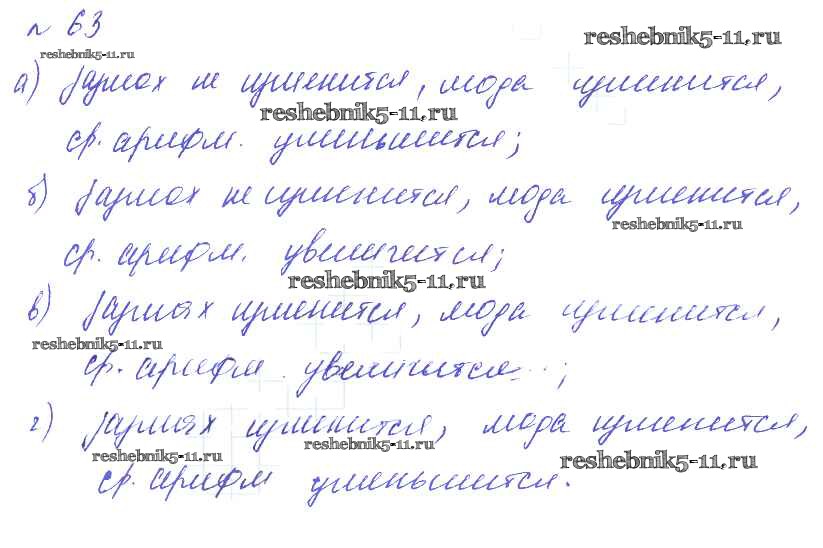 № 63
reshebnik5-11.ru
reshebnik5-11.ru
а) размах не изменится, мода изменится,
reshebnik5-11.ru
ср. арифм. уменьшится;
б) размах не изменится, мода изменится,
reshebnik5-11.ru
ср. арифм. увеличится;
reshebnik5-11.ru
в) размах изменится, мода изменится,
reshebnik5-11.ru
ср. арифм. увеличится;
г) размах изменится, мода изменится,
reshebnik5-11.ru
reshebnik5-11.ru
reshebnik5-11.ru
ср. арифм уменьшится.